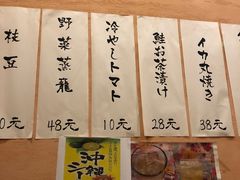 枝豆
0元
野菜蒸籠
48元
冷やしトマト
10元
鮭お茶漬け
28元
イカ丸焼き
38元
沖縄